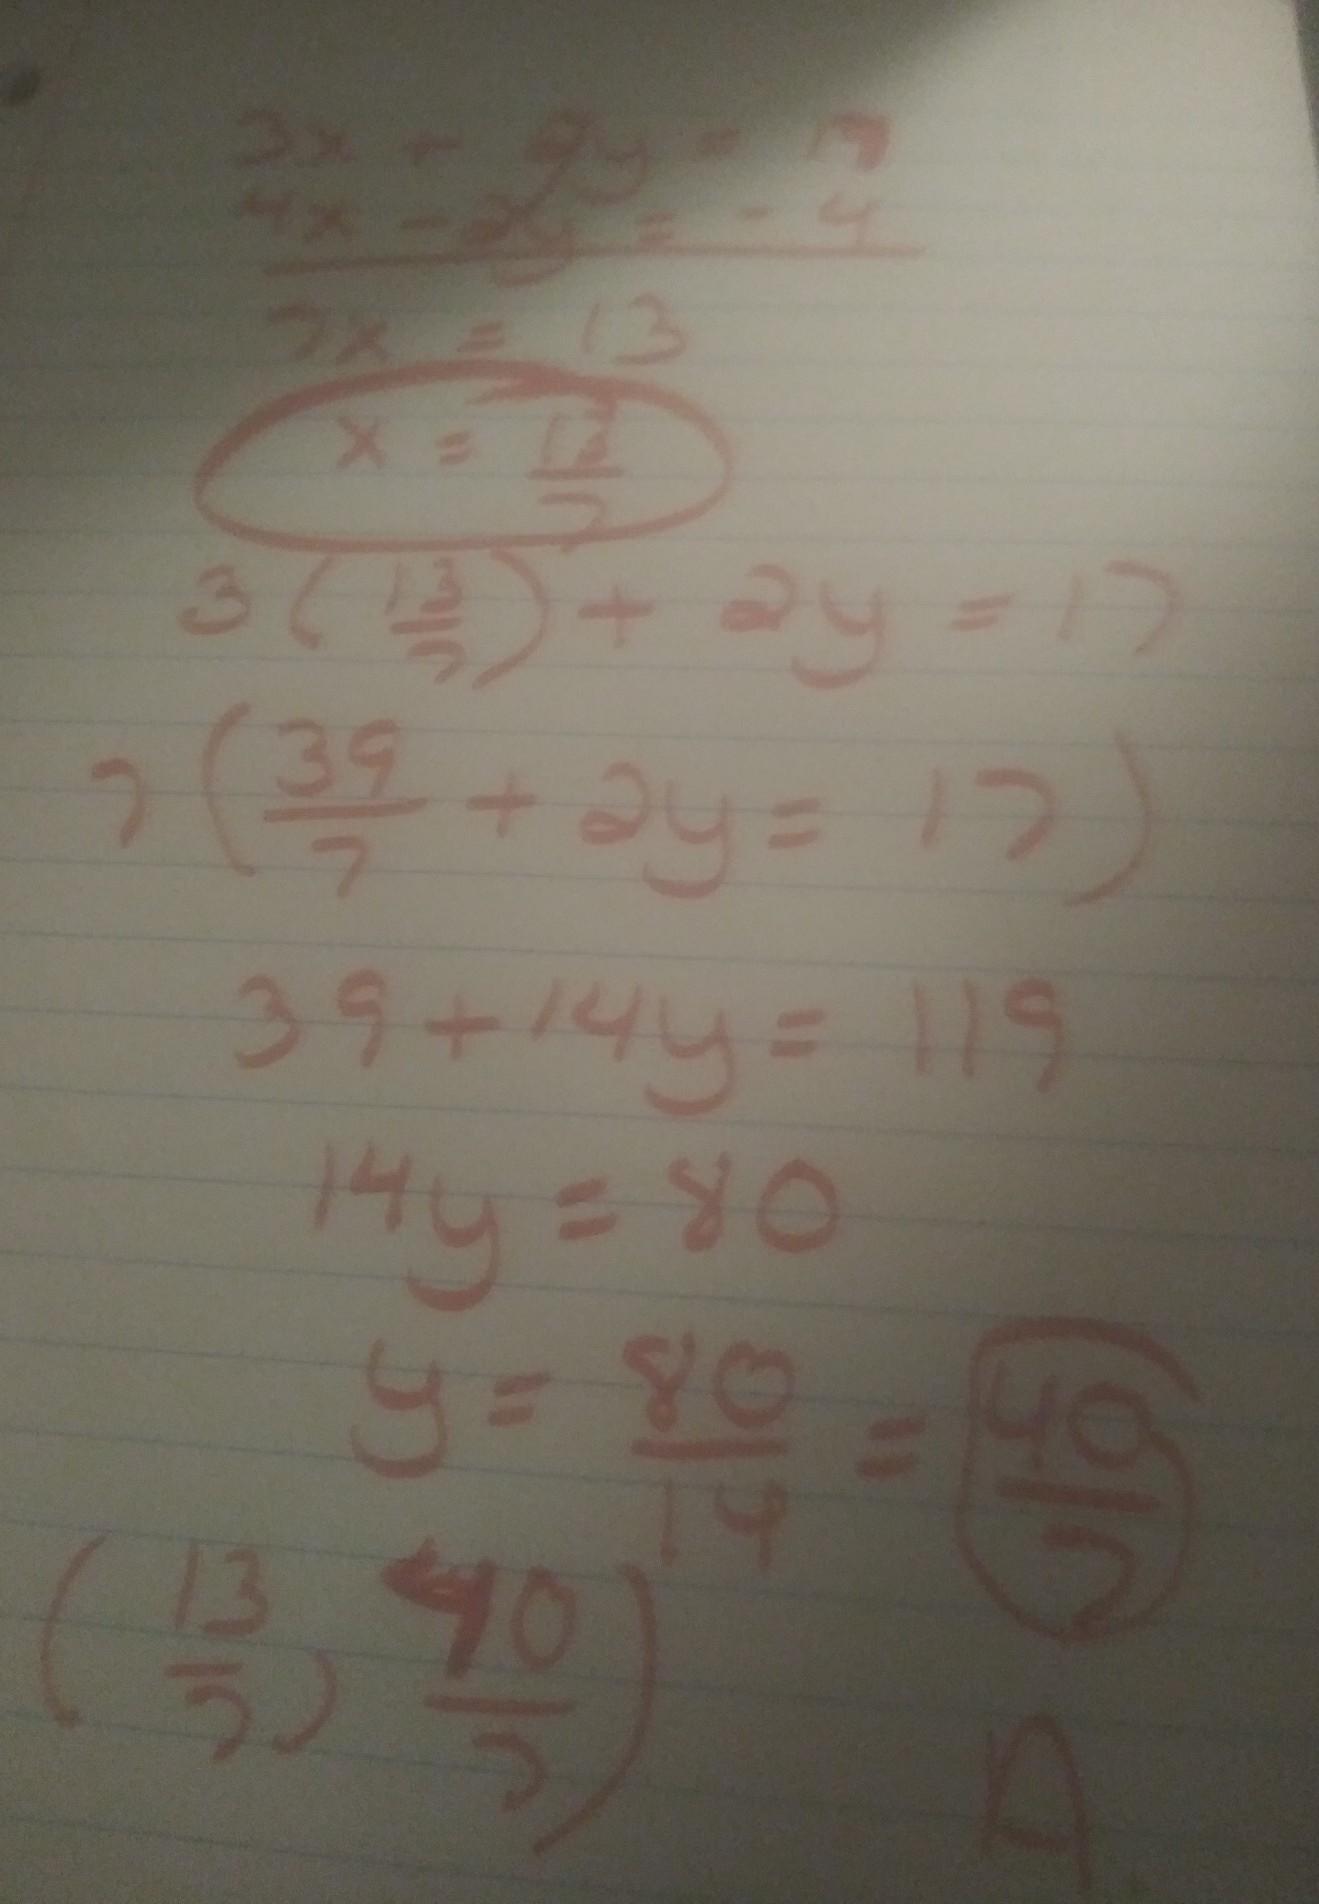 3x + 2y = 17
4x - 2y = - 4
7x = 13
x = 13/7
3 ( 13/7 ) + 2y = 17
7 ( 39/7 + 2y = 17 )
39 + 14y = 119
14y = 80
y = 80/14 = 40/7
( 13/7 , 40/7 )
A